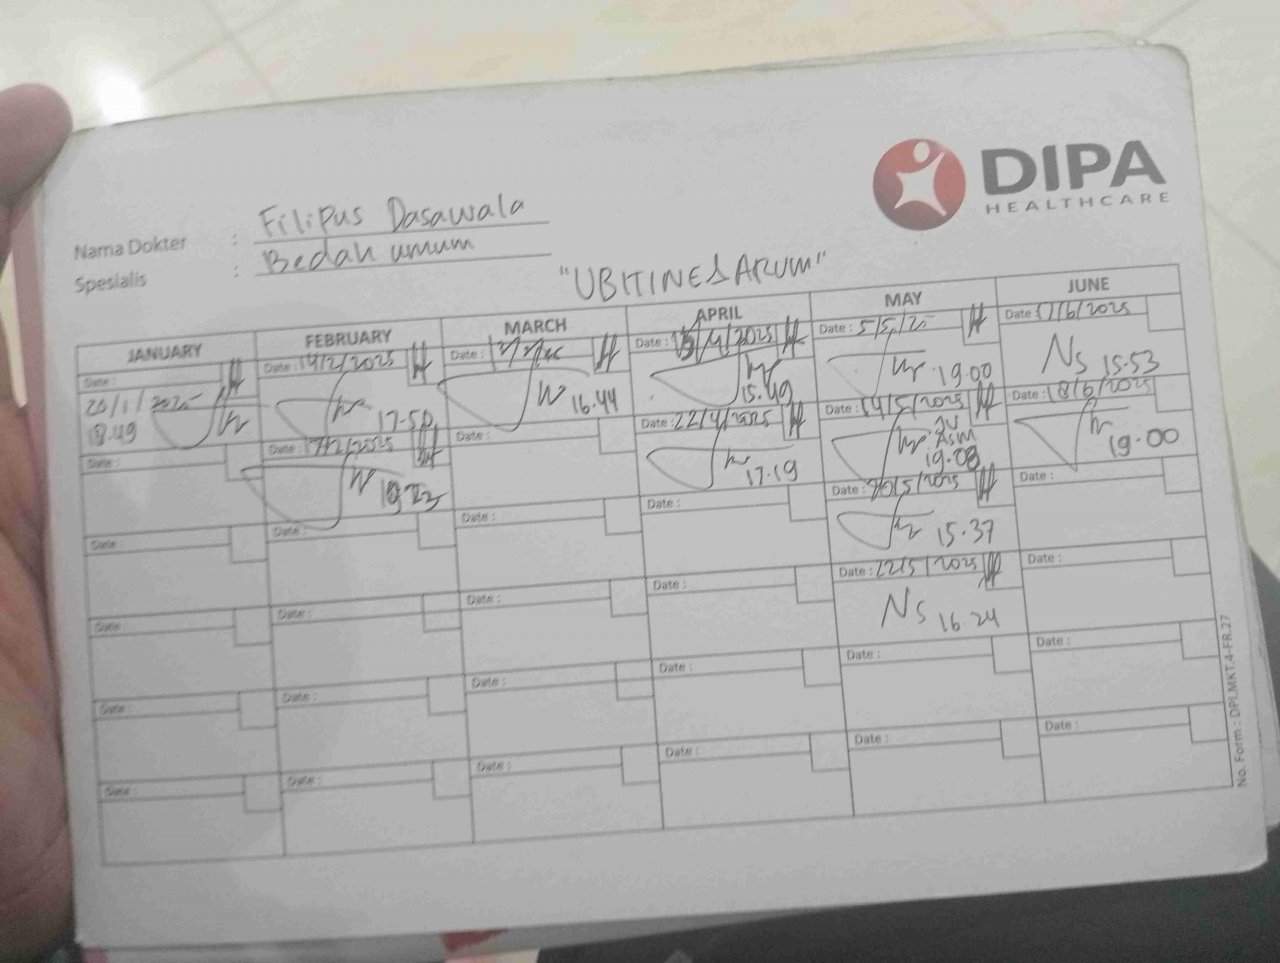 DIPA
HEALTHCARE
Nama Dokter : Filipus Dasawala
Spesialis : Bedah umum
"UBITINES ARUM"
JANUARY FEBRUARY MARCH APRIL MAY JUNE
Date : Date : 14/2/2025 Date : Date : /4/2025 Date : 5/5/25 Date : 17/6/2025
20/1/2025
18.49 17.50 16.44 15.49 19.00 Ns 15.53
Date : Date : 17/2/2025 Date : Date : 22/4/2025 Date : 14/5/2025 Date : 18/6/2025
17.19 Asm 19.08 19.00
Date : Date : Date : Date : Date : 20/5/2025 Date :
15.37
Date : Date : Date : Date : Date : 22/5/2025 Date :
Ns 16 24
Date : Date : Date : Date : Date : Date :
Date : Date : Date : Date : Date : Date :
No. Form : DPI.MKT.4-FR.27